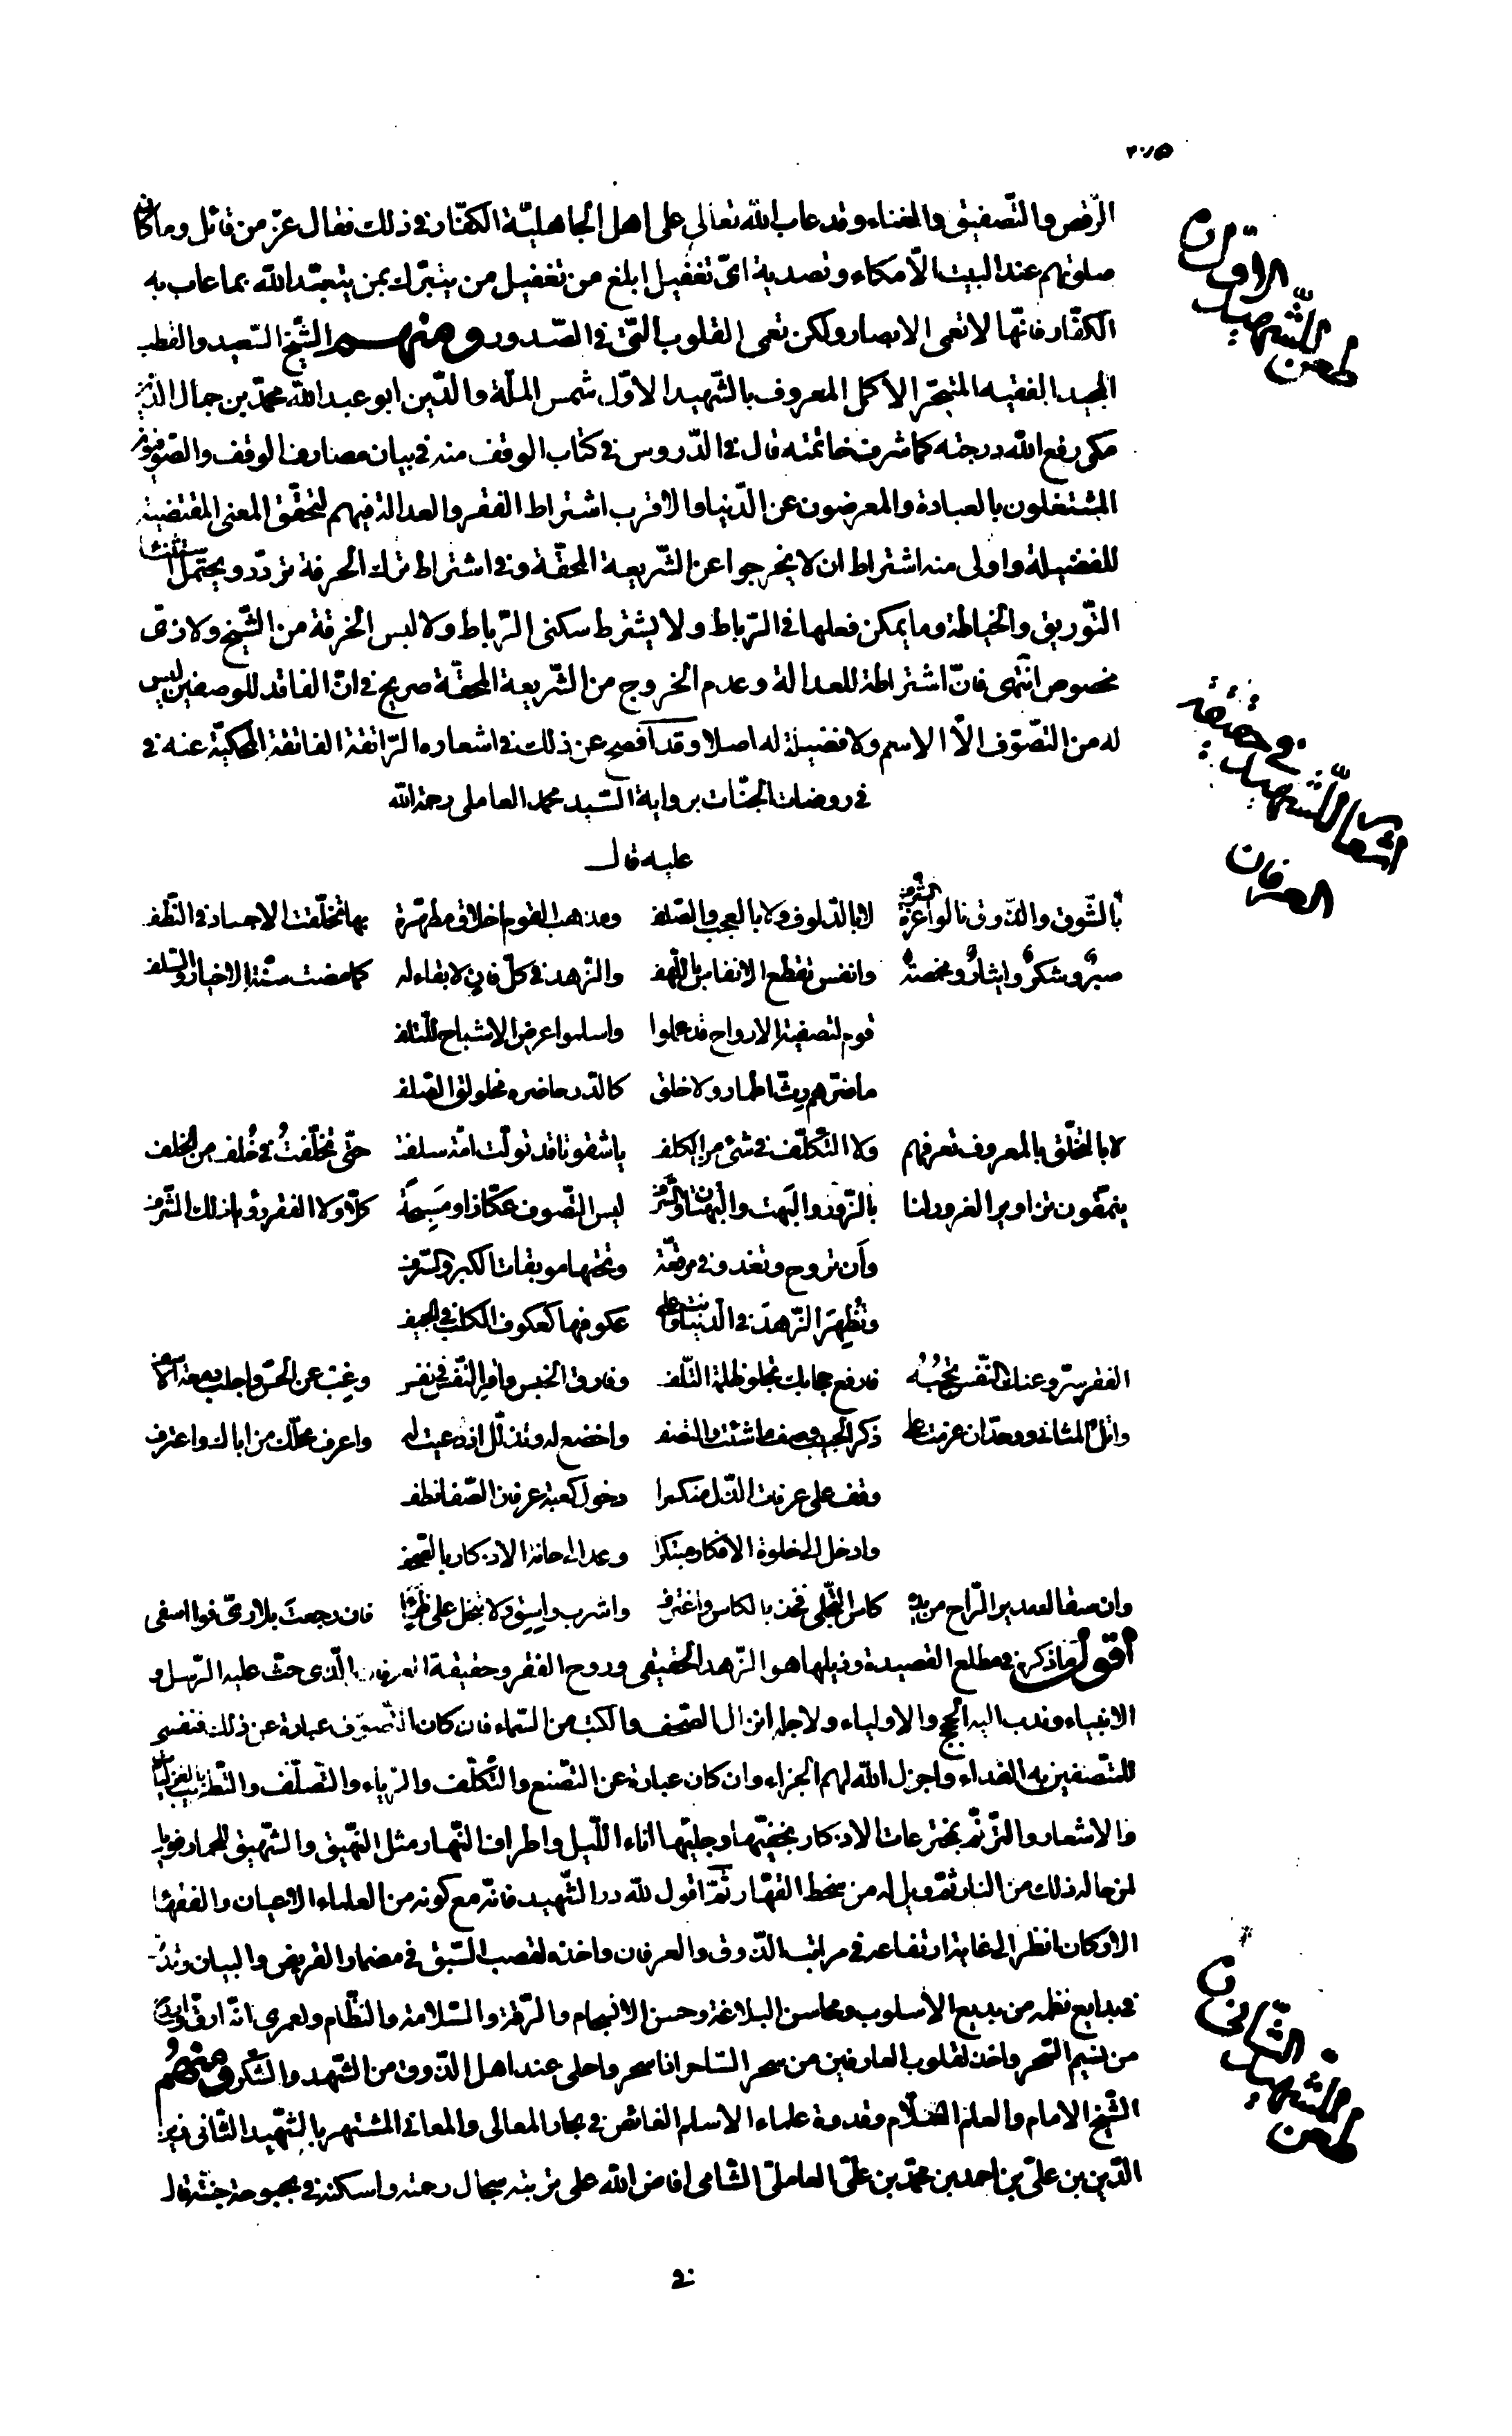 ٢٠٥
الرّقص والتّصفيق والغناء وقد عاب الله تعالى على اهل الجاهليّة الكفّار في ذلك فقال عزّ من قائل وما كان
صلوتهم عند البيت الّا مكاء وتصدية اىّ تغفيل ابلغ من تغفيل من يتبرّك بمن يتعبّد الله بما عاب به
الكفّار فانّها لا تعمى الابصار ولكن تعمى القلوب الّتى في الصّدور ومنهم الشّيخ السّعيد والقطب
المجيد الفقيه المتبحّر الاكمل المعروف بالشّهيد الاوّل شمس الملّة والدّين ابو عبد الله محمّد بن جمال الدّين
مكى رفع الله درجته كما شرف خاتمته قال في الدّروس في كتاب الوقف منه في بيان مصارف الوقف والصّوفيّون
المشتغلون بالعبادة والمعرضون عن الدّنيا والاقرب اشتراط الفقر والعدالة فيهم لتحقّق المعنى المقتضية
للفضيلة واولى منه اشتراط ان لا يخرجوا عن الشّريعة المحقّة وفي اشتراط ترك الحرفة تردّد ويحتمل استثناء
التّوريق والخياطة وما يمكن فعلها في الرّباط ولا يشترط سكنى الرّباط ولا لبس الخرقة من الشّيخ ولا زىّ
مخصوص انتهى فانّ اشتراطه للعدالة وعدم الخروج من الشّريعة المحقّة صريح في انّ الفاقد للوصفين ليس
له من التّصوّف الّا الاسم ولا فضيلة له اصلا وقد افصح عن ذلك في اشعاره الرّائقة الفائقة المحكيّة عنه في
في روضات الجنّات برواية السّيد محمد العاملى رحمة الله
عليه قال
بالشّوق والذّوق نالوا عزّة الشّرف لا بالدّلوف ولا بالعجب والصّلف ومذهب القوم اخلاق مطهّرة بها تخلّقت الاجساد في النّطف
صبرٌ وشكرٌ وايثارٌ ومخمصةٌ وانفس تقطع الانفاس باللّهف والزّهد في كلّ فانٍ لا بقاء له كما مضت سنّة الاخيار والسّلف
قوم لتصفية الارواح قد عملوا واسلموا عرض الاشباح للتّلف
ما ضرّهم رثّ اطمار ولا خلق كالدّر حاضره مخلولق الصّدف
لا بالتخلّق بالمعروف تعرفهم ولا التّكلّف في شئ من الكلف يا شقوتا قد تولّت امّة سلفت حتّى تخلّفتُ في خُلف من الخلف
ينمّقون تزاوير الغرور لنا بالزّور والبَهت والبُهتان والسّرف ليس التّصوف عكّازا ومَسبحَةً كلّا ولا الفقر رؤيا ذلك الشّرف
وَاَن تروح وتغدو في مرقّعة وتحتها موبقات الكبر والسّرف
وتُظهِرَ الزّهدَ في الدّنيا وانت على عكوفها كعكوف الكلب في الجيف
الفقر سرّ وعنك النّفس تحجبُه فارفع حجابك تجلو ظلمة التّلف وفارق الجنس واقر النّفس في نفس وغِبَ عن الحسّ واجلب دمعة الاسف
واتل المثانى ووحّد ان عزمت على ذكر الحبيب وصف ما شئت واتّصف واخضع له وتذلّل اذ دعيت له واعرف محلّك من اباك واعترف
وقف على عرفات الذّل منكسرا وحول كعبة عرفان الصّفا فطف
وادخل الى خلوة الافكار مبتكرا وعد الى حانة الاذكار بالصّحف
وان سقاك مدير الرّاح من يده كاس التّجلّى فخذ بالكاس واغترف واشرب واسق ولا تبخل على ظمأ فان رجعتَ بلا رىّ فوا اسفى
اقول ما ذكره في مطلع القصيدة وذيلها هو الزّهد الحقيقى وروح الفقر وحقيقة العرفان الّذى حثّ عليه الرّسل و
الانبياء وندب اليه الحجج والاولياء ولاجله انزال الصّحف والكتب من السّماء فان كان التّصوّف عبارة عن ذلك فنفسى
للمتّصفين به الفداء واجزل الله لهم الجزاء وان كان عبارة عن التّصنع والتّكلّف والرّياء والتّصلّف والتّطريب بالغزليات
والاشعار والترنّم بمخترعات الاذكار بخفيّها وجليّها اناء اللّيل واطراف النّهار مثل النّهيق والشّهيق للحمار فويل
لمن حاله ذلك من النار ثمّ ويل له من سخط القهّار ثمّ اقول لله درّ الشّهيد فانّه مع كونه من العلماء الاعيان والفقهاء
الاركان انظر الى غاية ارتفاعه في مراتب الذّوق والعرفان واخذه لقصب السّبق في مضمار القريض والبيان وتدبّر
في بدايع نظمه من بديع الاسلوب ومحاسن البلاغة وحسن الانسجام والرّقة والسّلامة والنّظام ولعمرى انّه ارقّ
من نسيم السّحر واخذ لقلوب العارفين من سحر السّاحر اذا سحر واحلى عند اهل الذّوق من الشّهد والسّكّر ومنهم
الشّيخ الامام والعلم العلّام وقدوة علماء الاسلام الغائص في بحار المعالى والمعانى المشتهر بالشّهيد الثّانى زين
الدّين بن علىّ بن احمد بن محمّد بن علىّ العاملىّ الشّامى افاض الله على تربته سجال رحمته واسكنه في بحبوحة جنّته قال
في
طعن الشّهيد الاوّل
اشعار الشّهيد في حقيقة العرفان
طعن الشّهيد الثّانى